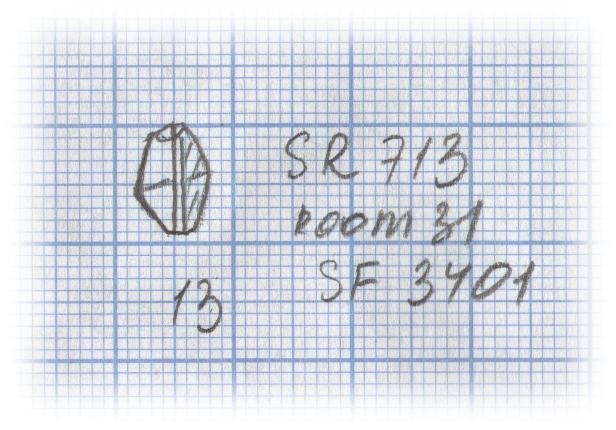 SR 713
ROOM 31
SF 3401
13